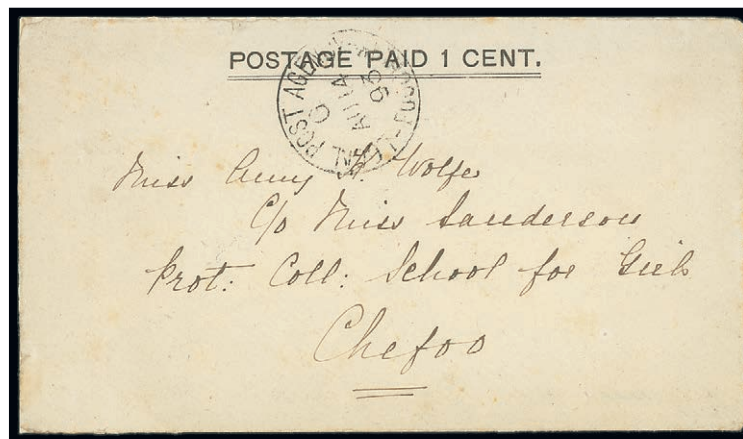 POSTAGE PAID 1 CENT.
LOCAL POST AGENCY
FOOCHOW
C
AU 14
95
Miss Amy B. Wolfe
C/o Miss Sanderson
Prot: Coll: School for Girls
Chefoo